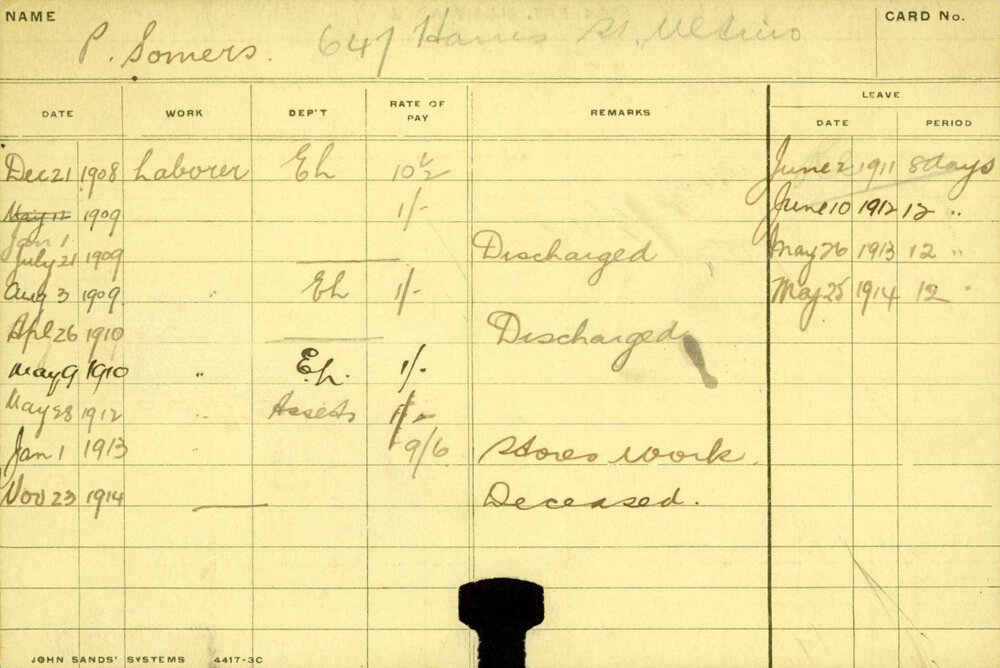 NAME P. Somers. 647 Harris St, Ultimo CARD No.
LEAVE
DATE WORK DEP'T RATE OF PAY REMARKS DATE PERIOD
Dec 21 1908 Laborer Eh 10½ June 2 1911 8 days
May 12 1909 1/- June 10 1912 12 "
Jan 1
July 21 1909 Discharged May 26 1913 12 "
Aug 3 1909 " Eh 1/- May 25 1914 12 "
Apl 26 1910 Discharged
May 9 1910 " Eh. 1/-
May 28 1912 " Assets 1/-
Jan 1 1913 9/6 Stores work.
Nov 23 1914 Deceased.
JOHN SANDS' SYSTEMS 4417-3C